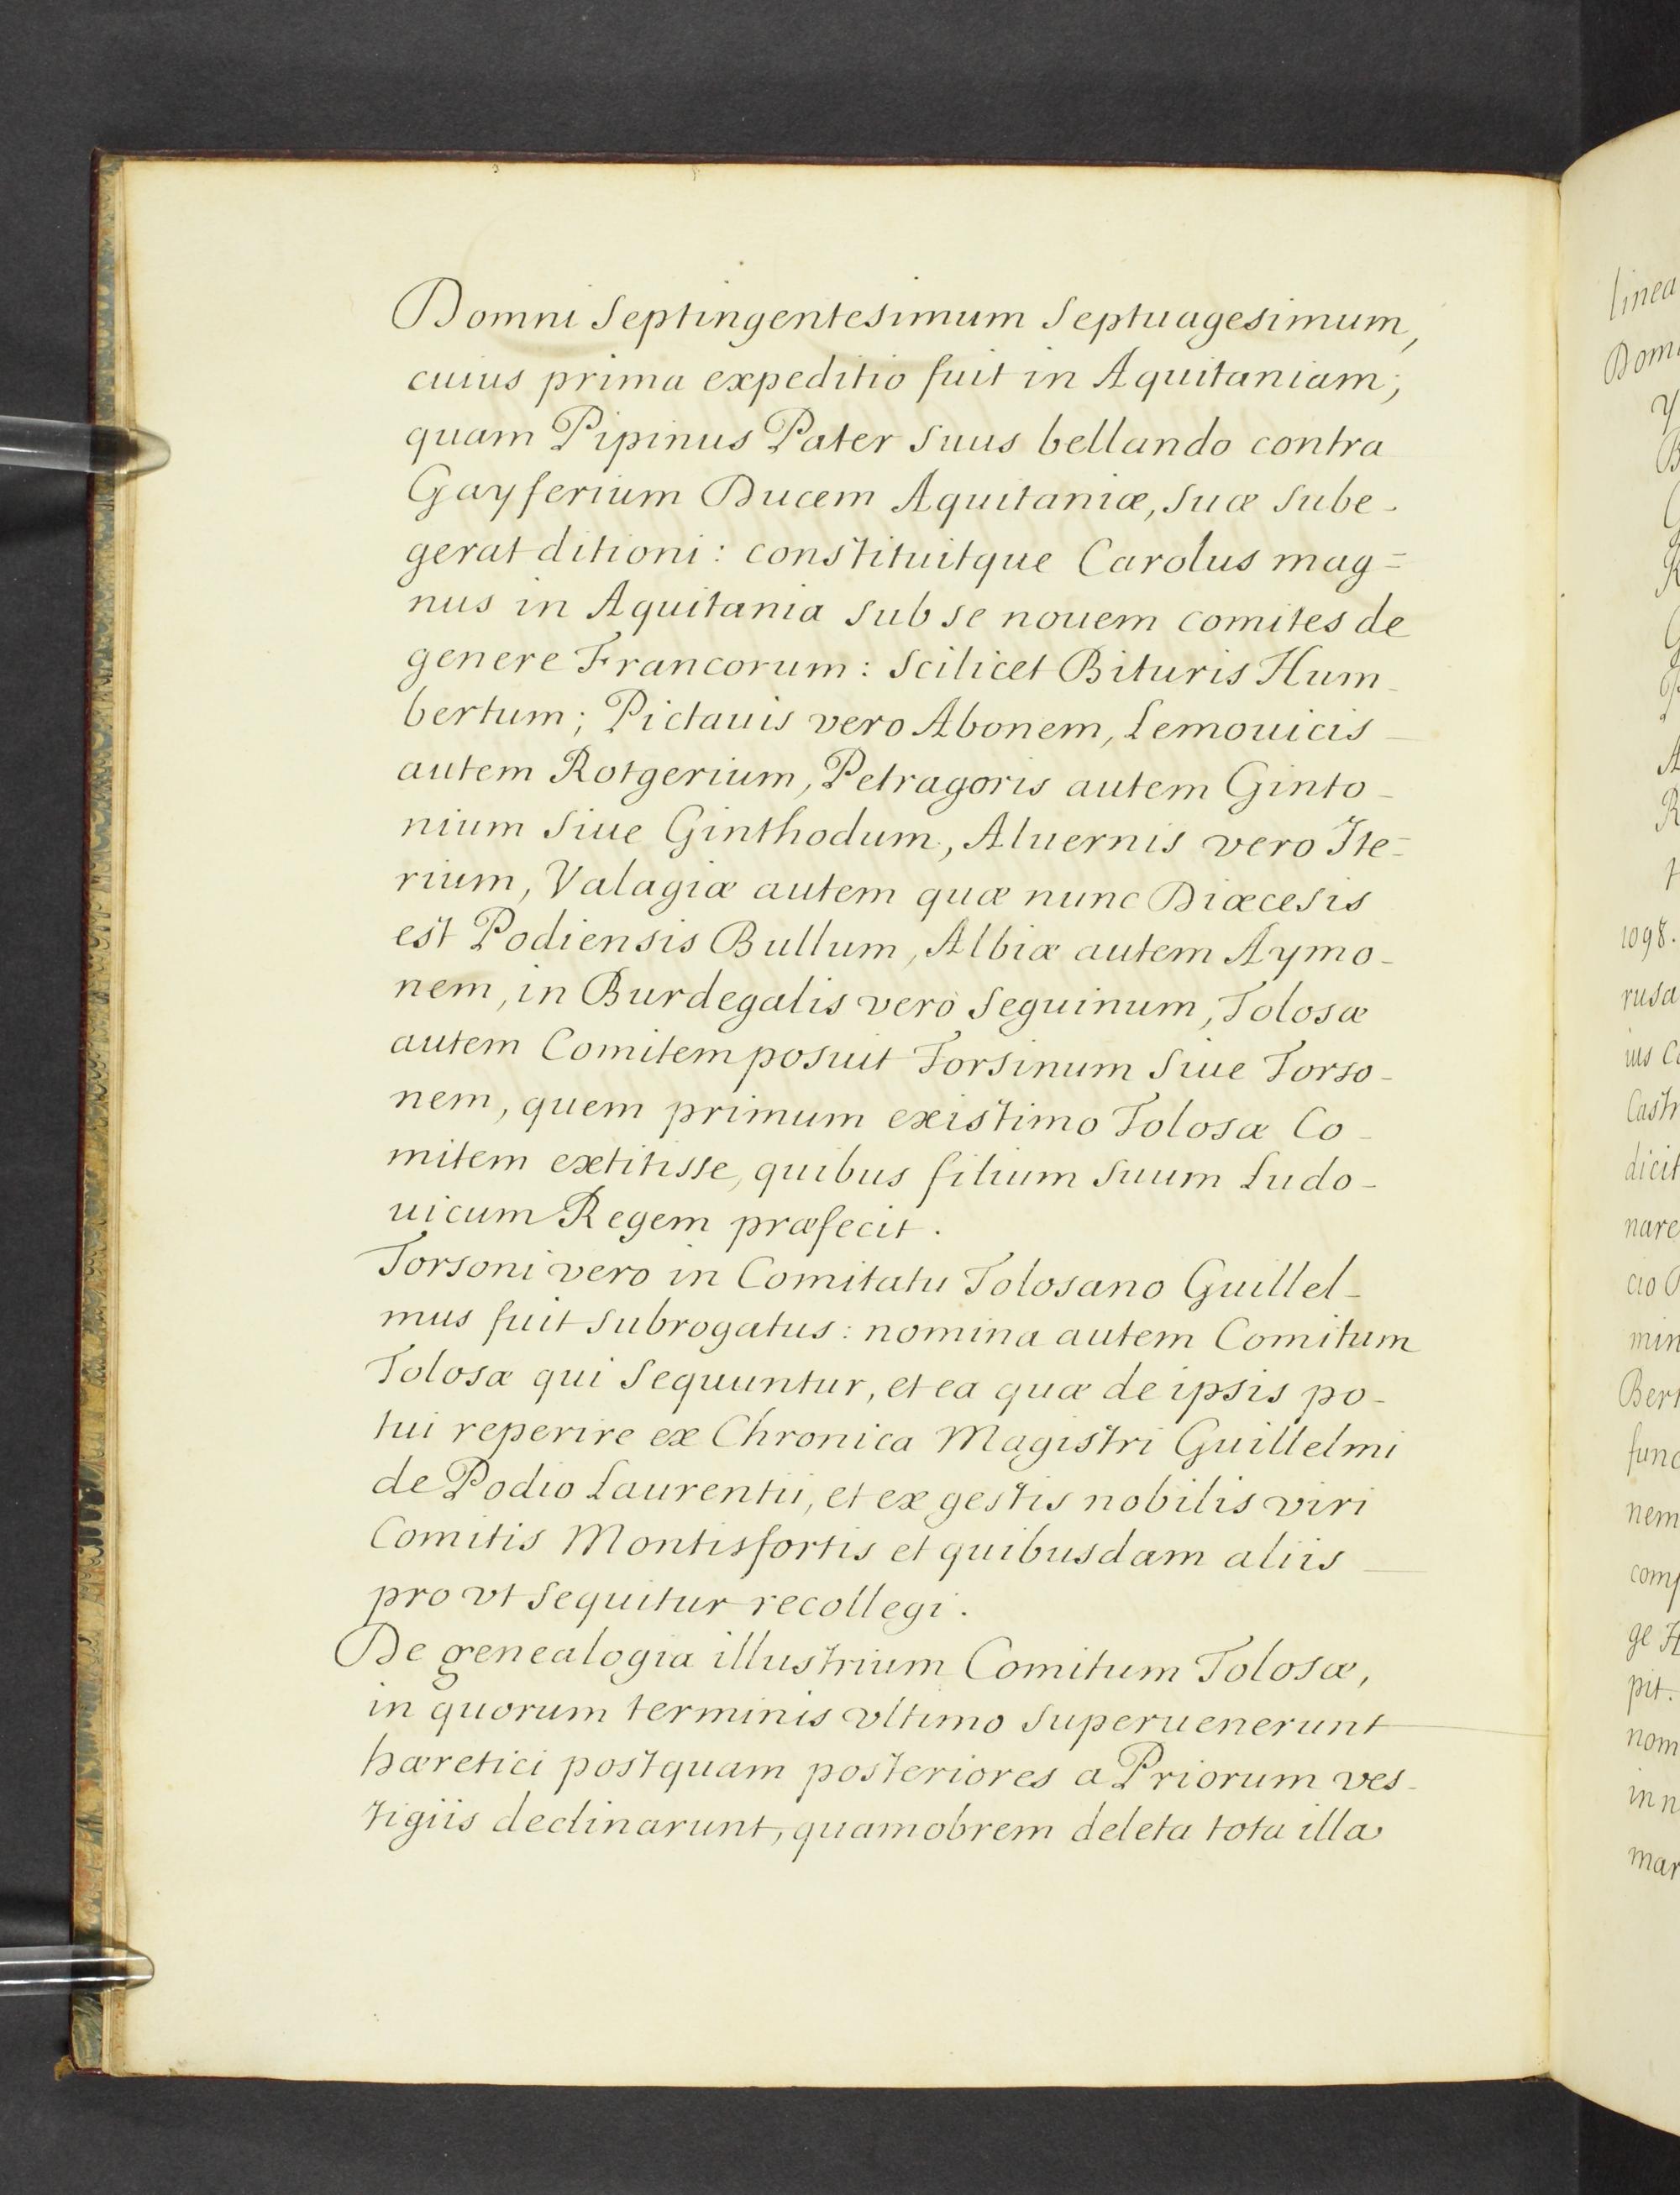 Domni Septingentesimum Septuagesimum,
cuius prima expeditio fuit in Aquitaniam;
quam Pipinus Pater Suus bellando contra
Gayferium Ducem Aquitaniæ, Suæ Sube-
gerat ditioni: constituitque Carolus mag=
nus in Aquitania Sub Se nouem comites de
genere Francorum: Scilicet Bituris Hum-
bertum; Pictauis vero Abonem, Lemouicis
autem Rotgerium, Petragoris autem Ginto-
nium Siue Ginthodum, Aluernis vero Ite=
rium, Valagiæ autem quæ nunc Diœcesis
est Podiensis Bullum, Albiæ autem Aymo-
nem, in Burdegalis vero Seguinum, Tolosæ
autem Comitem posuit Torsinum Siue Torso-
nem, quem primum existimo Tolosæ Co-
mitem extitisse, quibus filium Suum Ludo-
uicum Regem præfecit.
Torsoni vero in Comitatu Tolosano Guillel-
mus fuit Subrogatus: nomina autem Comitum
Tolosæ qui Sequuntur, et ea quæ de ipsis po-
tui reperire ex Chronica Magistri Guillelmi
de Podio Laurentii, et ex gestis nobilis viri
Comitis Montisfortis et quibusdam aliis
pro vt Sequitur recollegi.
De genealogia illustrium Comitum Tolosæ,
in quorum terminis vltimo Superuenerunt
hæretici postquam posteriores a Priorum ves-
tigiis declinarunt, quamobrem deleta tota illa
linea
1098.